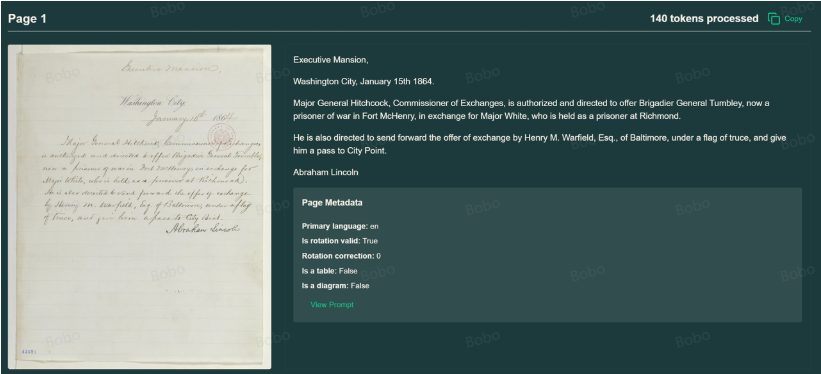 Page 1
140 tokens processed
Copy
Executive Mansion,
Washington City,
January 15th 1864.
Major General Hitchcock, Commissioner of Exchanges,
is authorized and directed to offer Brigadier General
now a prisoner of war in Fort McHenry, in exchange for
Major White, who is held as a prisoner at Richmond.
He is also directed to send forward the offer of exchange
by Henry M. Warfield, Esq. of Baltimore, under a flag
of truce, and give him a pass to City Point.
Abraham Lincoln
Executive Mansion,
Washington City, January 15th 1864.
Major General Hitchcock, Commissioner of Exchanges, is authorized and directed to offer Brigadier General Tumbley, now a
prisoner of war in Fort McHenry, in exchange for Major White, who is held as a prisoner at Richmond.
He is also directed to send forward the offer of exchange by Henry M. Warfield, Esq., of Baltimore, under a flag of truce, and give
him a pass to City Point.
Abraham Lincoln
Page Metadata
Primary language: en
Is rotation valid: True
Rotation correction: 0
Is a table: False
Is a diagram: False
View Prompt
Bobo